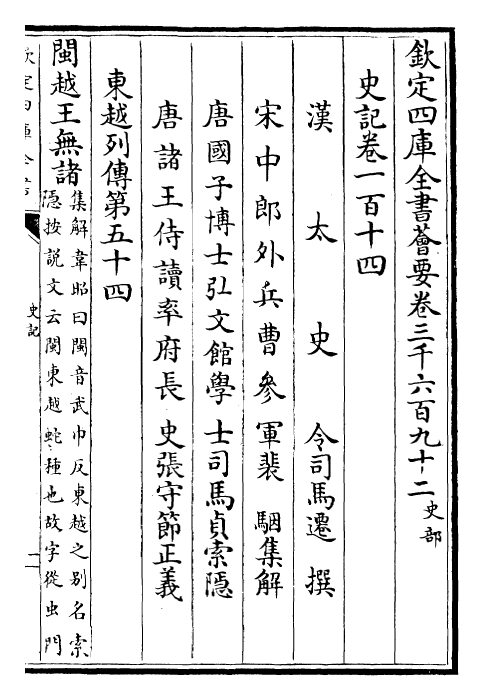 欽定四庫全書薈要卷三千六百九十二史部
史記卷一百十四
漢太史令司馬遷撰
宋中郎外兵曹參軍裴駰集解
唐國子博士弘文館學士司馬貞索隱
唐諸王侍讀率府長史張守節正義
東越列傳第五十四
閩越王無諸
集解韋昭曰閩音武巾反東越之别名索
隱按說文云閩東越蛇種也故字從虫門
史記
一